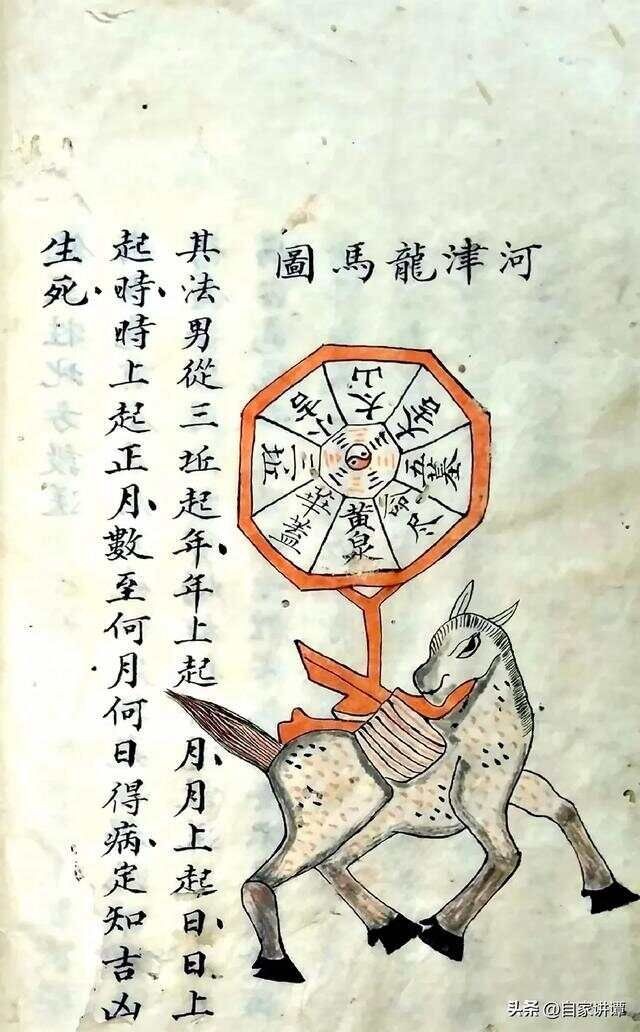 河津龍馬圖
太山
五墓
命尽
黄泉
華蓋
三坵
小吉
其法男從三坵起年年上起 月月上起日日上
起時時上起正月數至何月何日得病定知吉凶
生死
头条 @自家讲谭